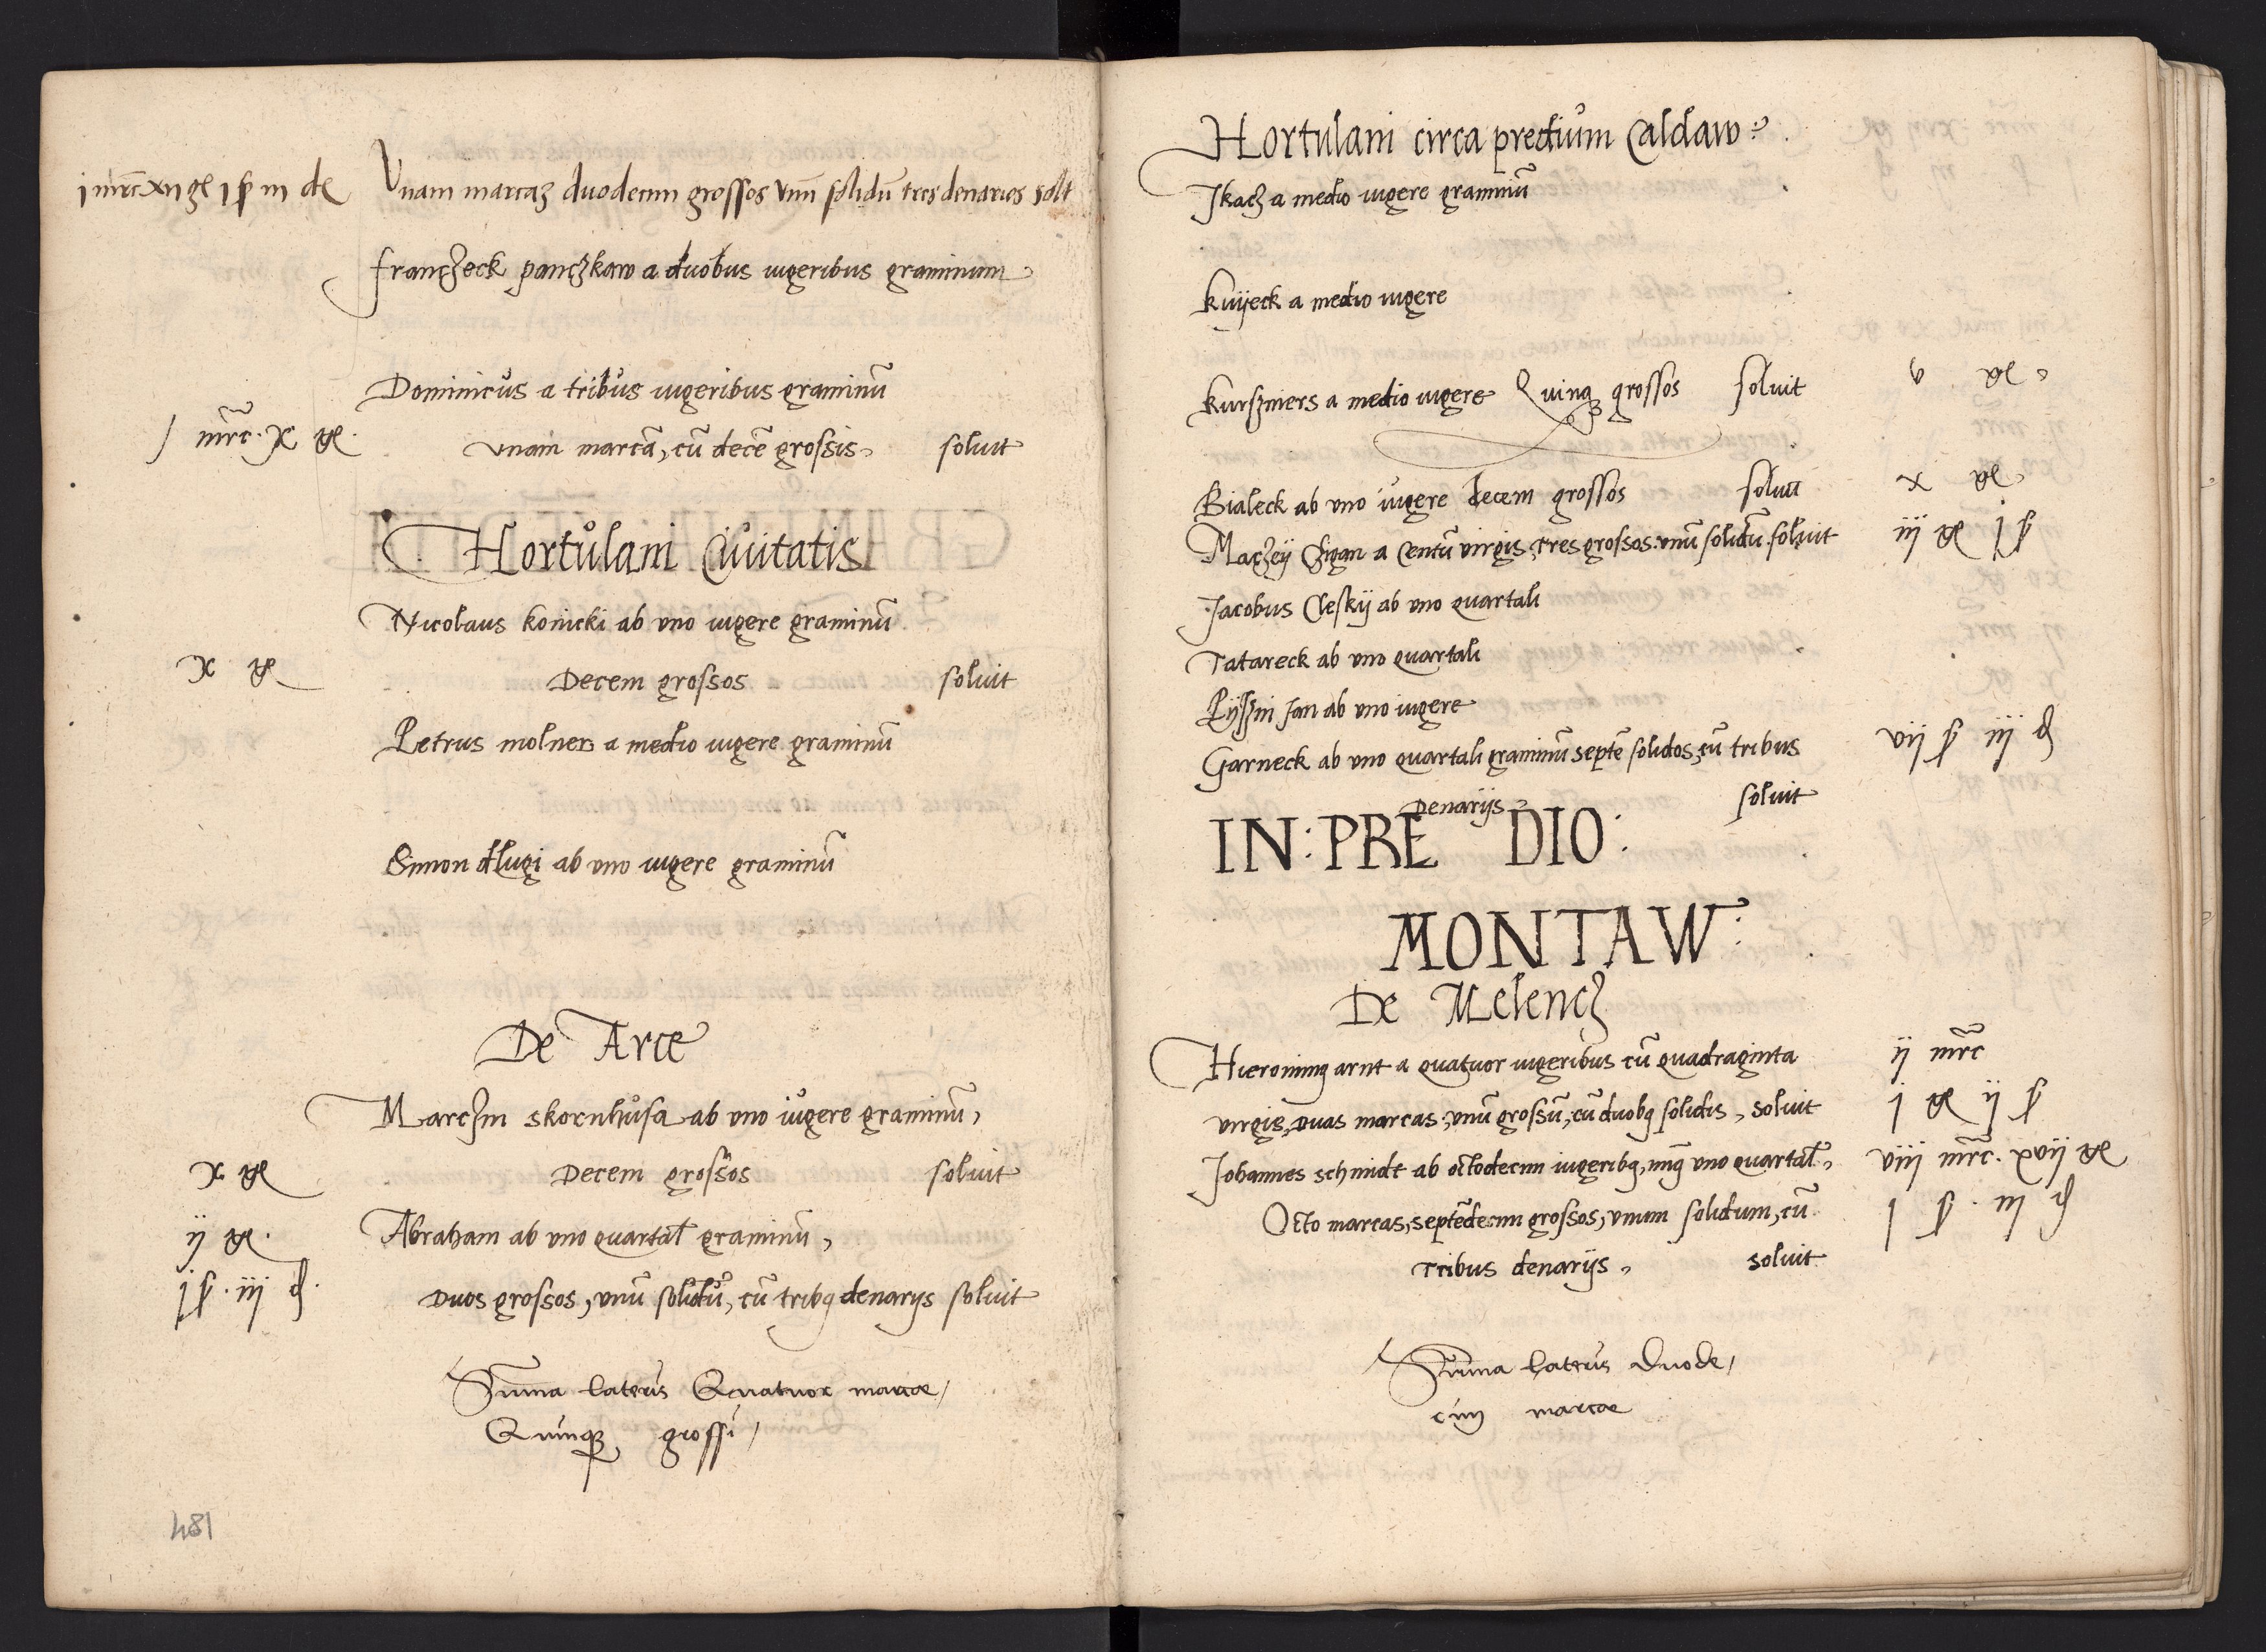 j mrc xij gr j ß iij de Vnam marcaʒ duodecim grossos vnū solidū tres denarios solt
franczeck panczkaw a duobus iugeribus graminum
Dominicus a tribus iugeribus graminū
j mrc. x gr. vnam marcā, cū decē grossis soluit
Hortulani Ciuitatis
Nicolaus konicki ab vno iugere graminū
x gr Decem grossos soluit
Petrus molner a medio iugere graminū
Simon dlugi ab vno iugere graminū
De Arce
Marczin skornhusa ab vno iugere graminū,
x gr Decem grossos soluit
ij gr. Abraham ab vno quartal graminū,
j ß. iij d. Duos grossos, vnū solidū, cū tribꝫ denarijs soluit
Sūma lateris Quatuor marcae,
Quinqꝫ grossi,
481
Hortulani circa predium Caldaw
Jkacz a medio iugere graminū
kuijeck a medio iugere
kurszniers a medio iugere Quinqꝫ grossos soluit v gr
Bialeck ab vno iugere decem grossos soluit x gr
Maczeij Sigan a Centū virgis, tres grossos: vnū solidū soluit iij gr j ß
Jacobus Cleskij ab vno quartali
Tatareck ab vno quartali
Pijszni Jan ab vno iugere
Garneck ab vno quartali graminū septē solidos, cū tribus vij ß iij d
Denarijs soluit
IN: PRE DIO:
MONTAW:
De Melencz
Hieronimꝫ arnt a quatuor iugeribus cū quadraginta ij mrc
virgis, duas marcas, vnū grossū, cū duobꝫ solidis, soluit j gr ij ß
Johannes schmidt ab octodecim iugeribꝫ, minꝫ vno quartal, viij mrc. xvij gr
Octo marcas, septēdecim grossos, vnum solidum, cū j ß. iij d
Tribus denarijs, soluit
Sūma lateris Duode,
cim marcae